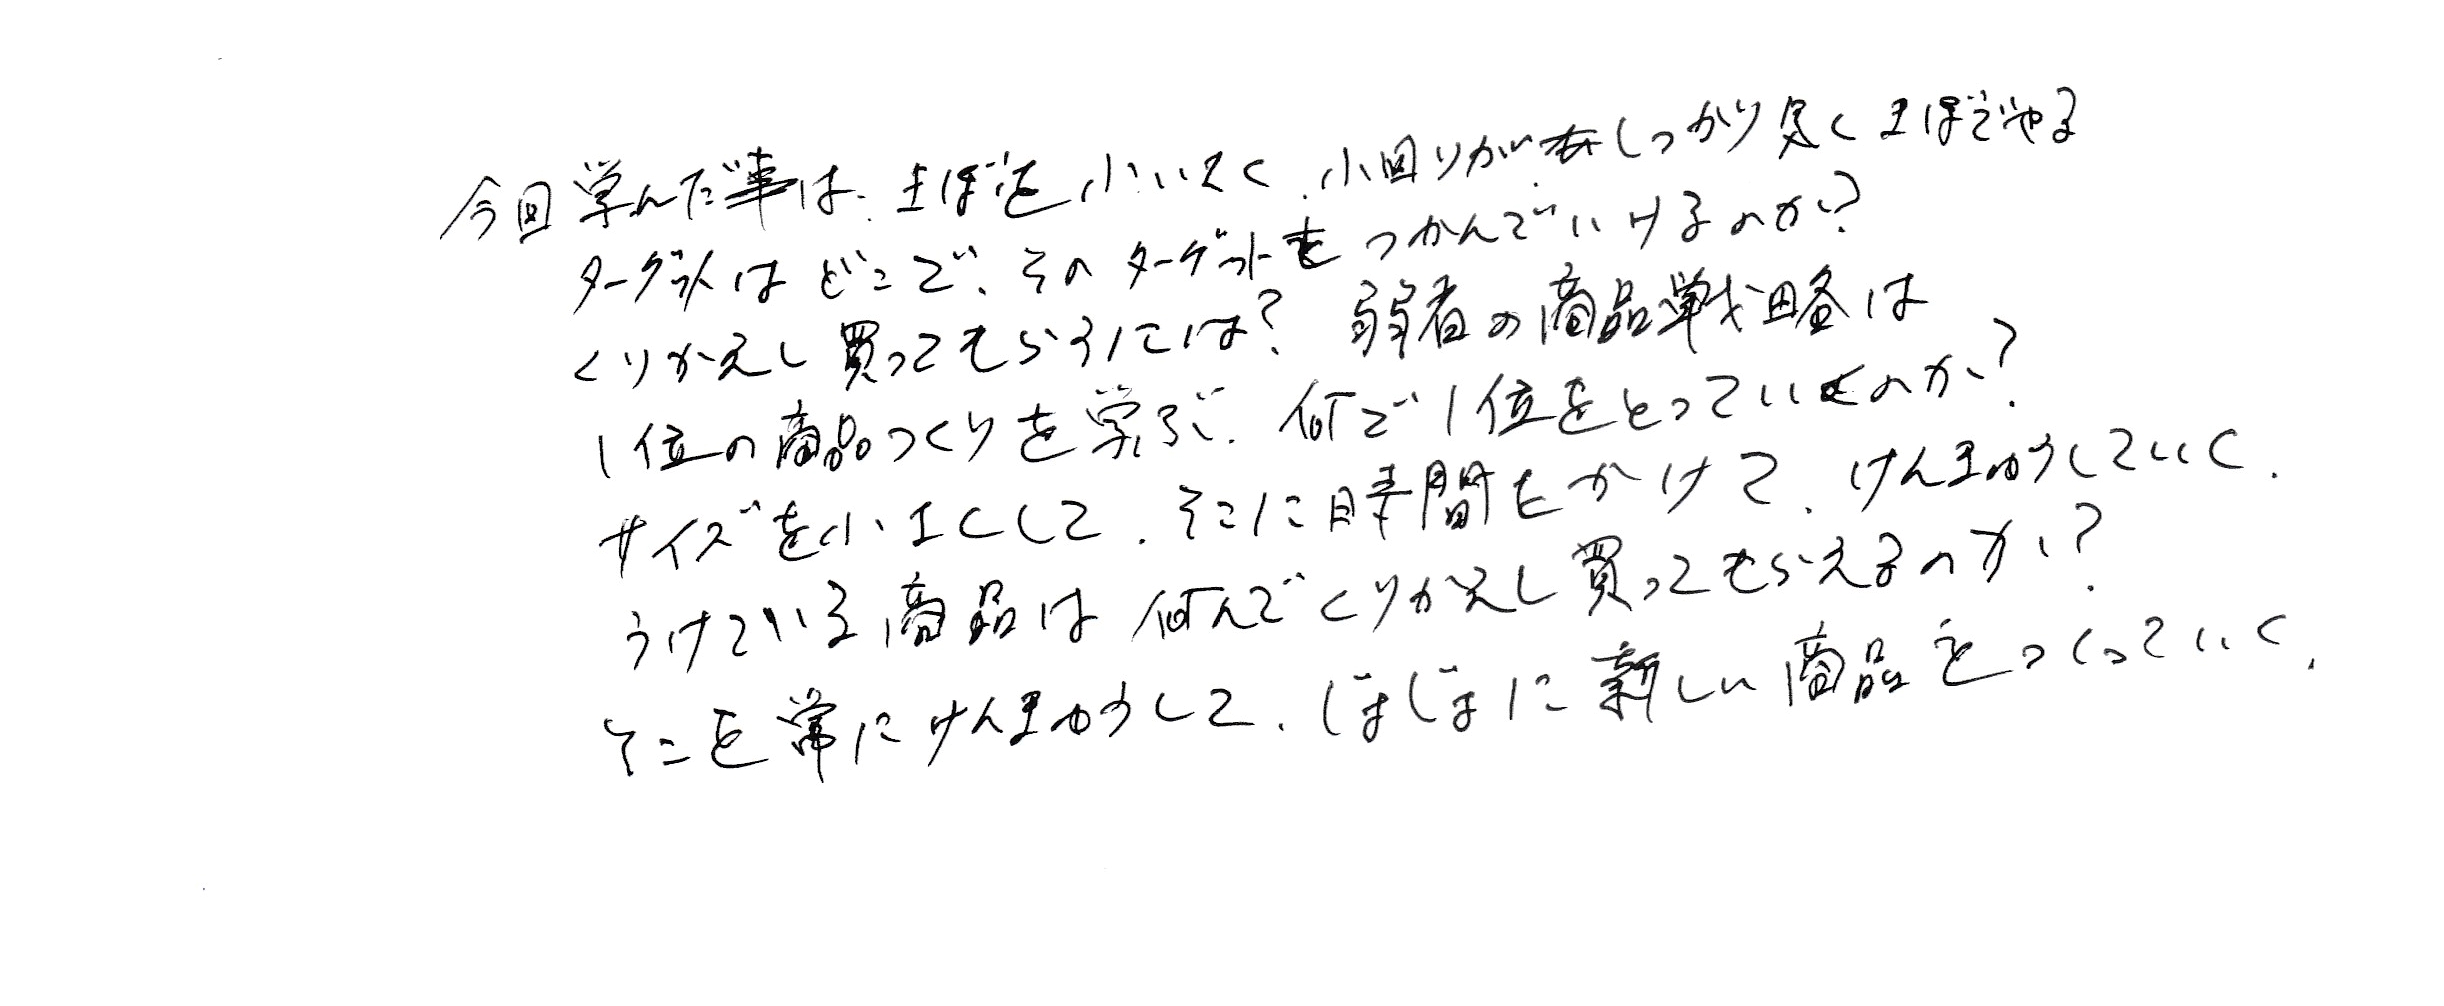 今回学んだ事は、まぼを小いさく、小回りがしっかり気くまぼでやる
ターゲットはどこで、そのターゲットをつかんでいけるのか?
くりかえし買ってもらうには? 弱者の商品戦略は
1位の商品つくりを学ぶ、何で1位をとっていくのか?
サイズを小まくして、そこに時間をかけて、けんきゅうしていく、
うけている商品は何んでくりかえし買ってもらえるのか?
そこを常にけんきゅうして、じょじょに新しい商品をつくっていく、